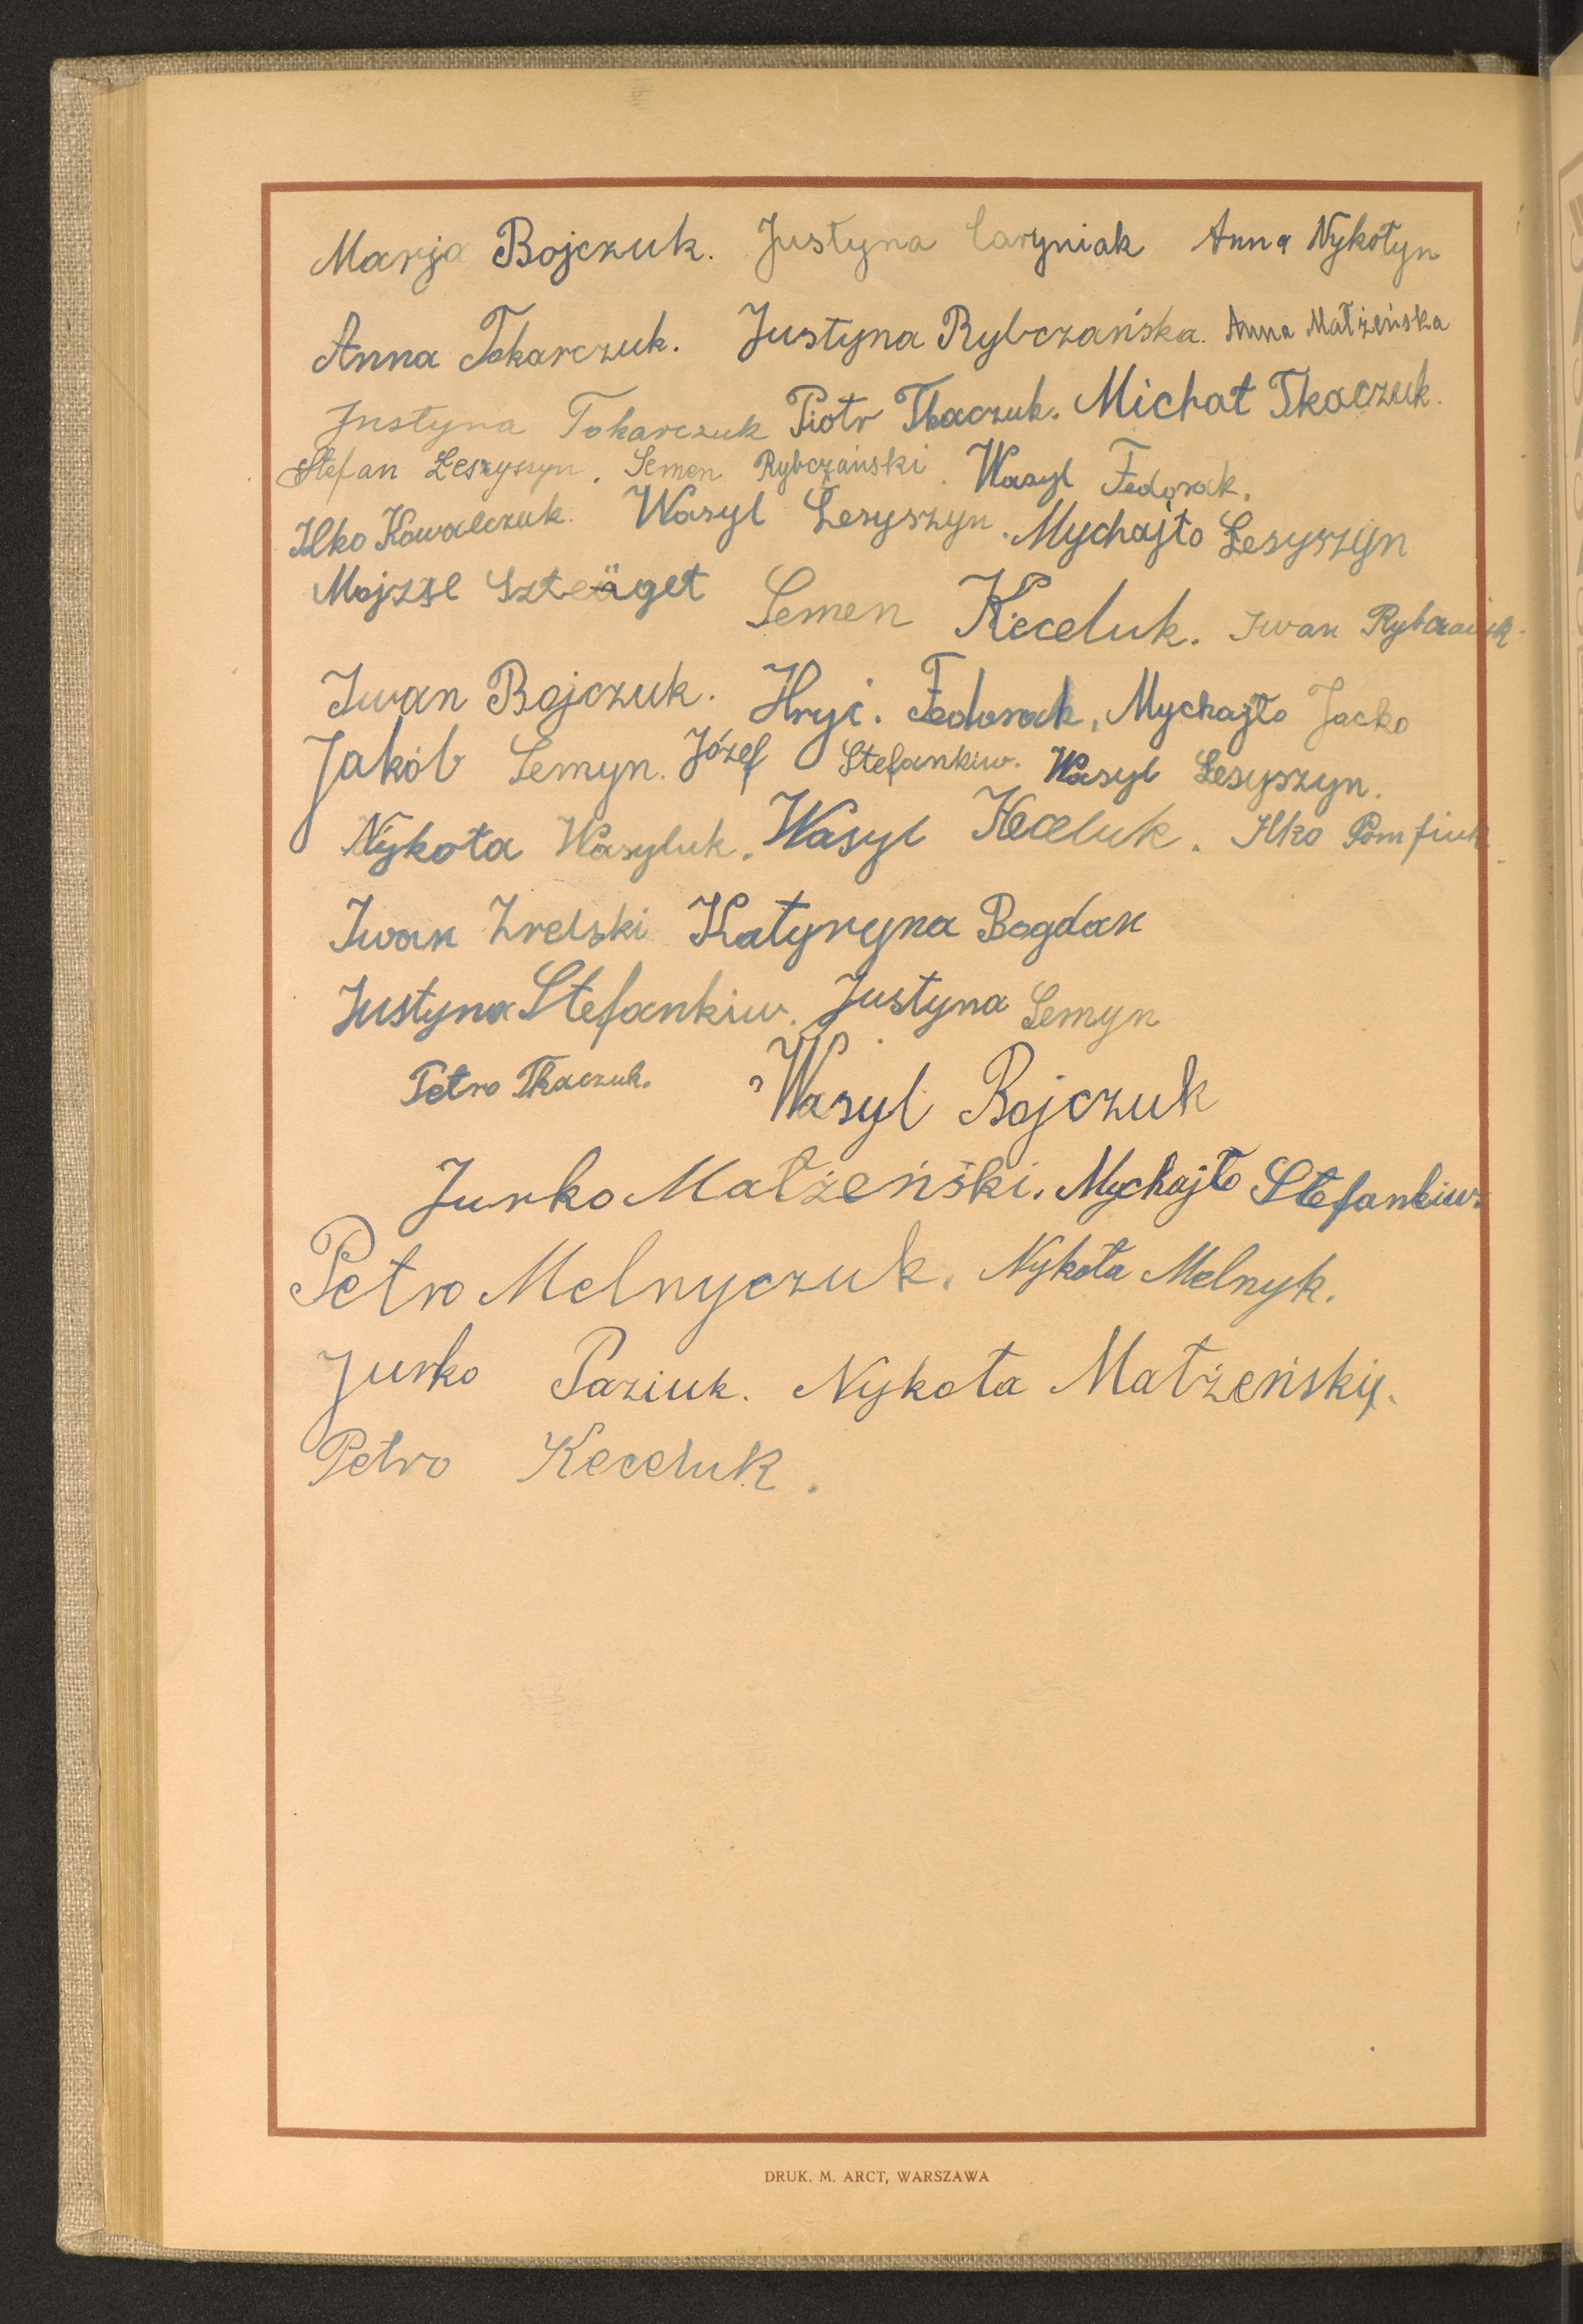 Marja Bojczuk. Justyna Caryniak Anna Nykołyn
Anna Tokarczuk. Justyna Rybczańska. Anna Małżeńska
Justyna Tokarczuk Piotr Tkaczuk. Michał Tkaczuk.
Stefan Leszyszyn. Semen Rybczański. Wasyl Fedorak.
Ilko Kowalczuk. Wasyl Łesyszyn. Mychajło Łesyszyn
Semen Keceluk. Iwan
Iwan Bojczuk. Hryć. Fedorak, Mychajło Jacko
Jakób Semyn. Józef Stefankiw. Wasyl Łesyszyn.
Nykoła Wasyluk. Wasyl Keceluk. Ilko Pomfiuk.
Iwan Zrelski Katyryna Bogdan
Justyna Stefankiw. Justyna Semyn
Petro Tkaczuk. Wasyl Bojczuk
Jurko Małżeński. Mychajło Stefankiw.
Petro Melnyczuk. Nykoła Melnyk.
Jurko Paziuk. Nykoła Małżeńskij.
Petro Keceluk.
DRUK. M. ARCT, WARSZAWA